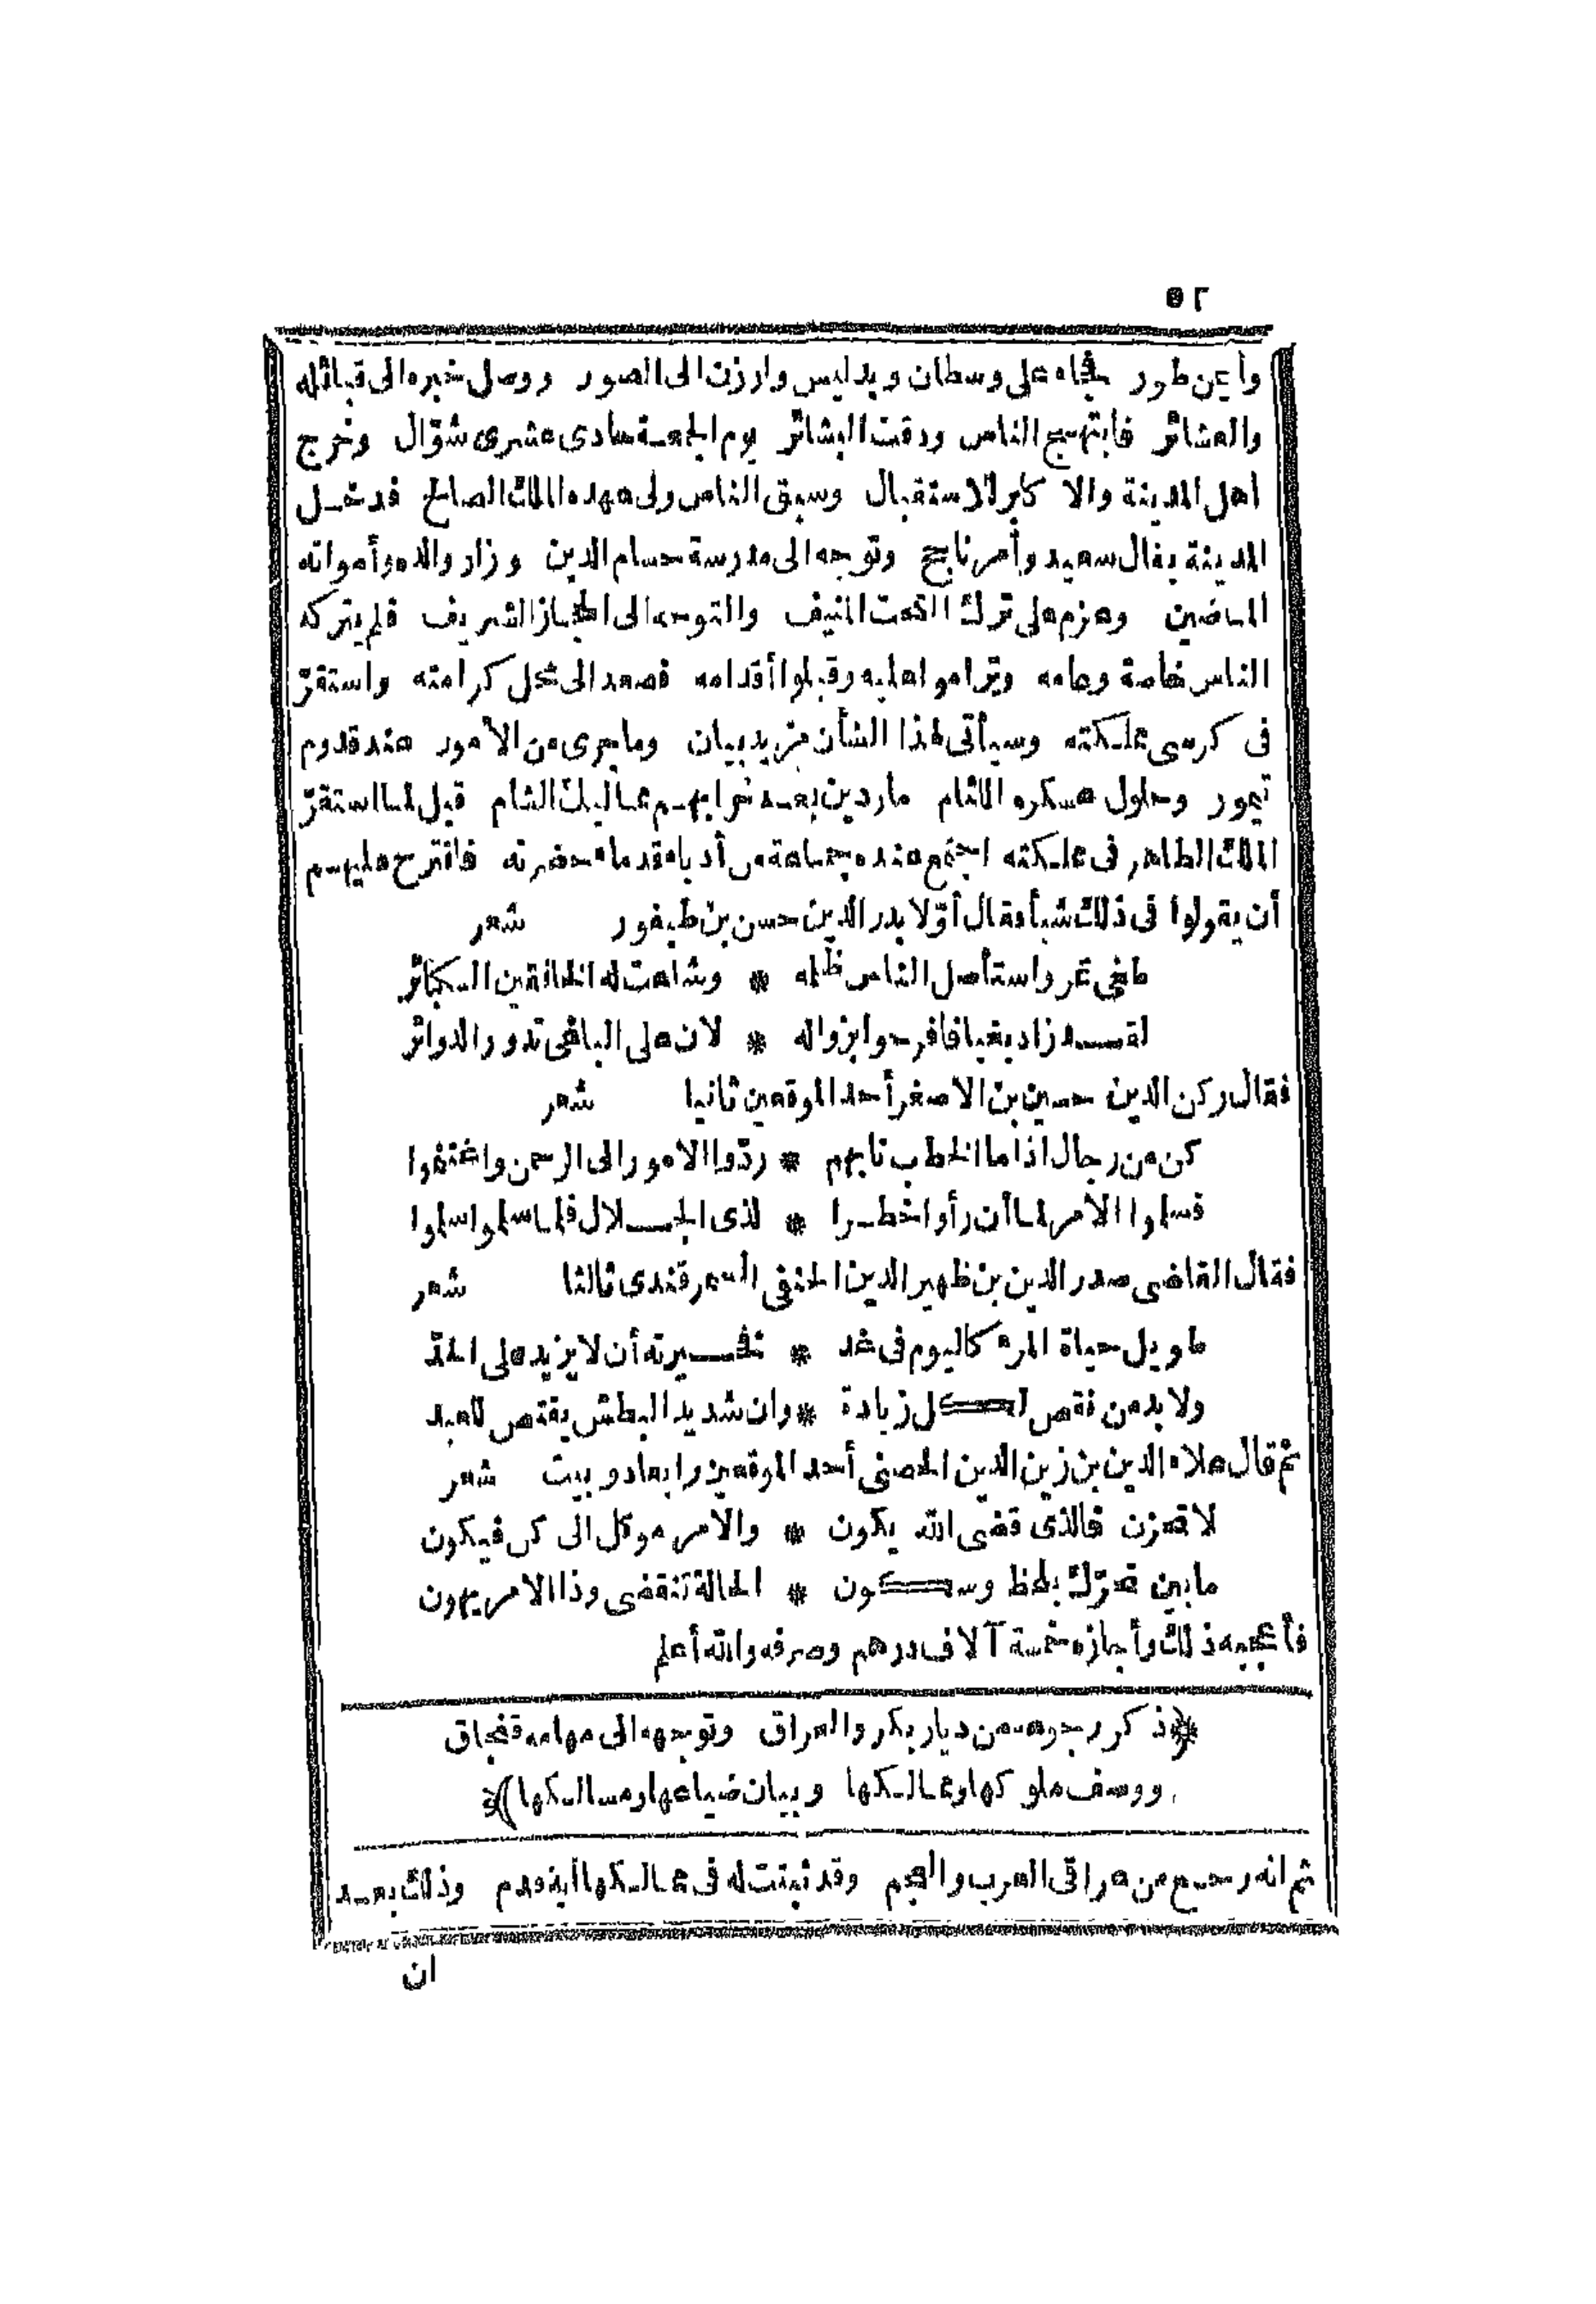 ٥٢
وأيمن طور فجاء على وسطان وبدليس وارزن الى الصور ووصل خبره الى قبائله
والعشائر فابتهج الناس ودقت البشائر يوم الجمعة حادى عشرى شوّال وخرج
اهل المدينة والا كابر للاستقبال وسبق الناس ولى عهده الملك الصالح فدخل
المدينة بفال سعيد وأمر ناجح وتوجه الى مدرسة حسام الدين وزار والده وأمواته
الماضين وعزم على ترك التخت المنيف والتوجه الى الحجاز الشريف فلم يتركه
الناس خاصة وعامه وتراموا عليه وقبلوا أقدامه فصعد الى محل كرامته واستقرّ
فى كرسى مملكته وسيأتى لهذا الشأن مزيد بيان وما جرى من الأمور عند قدوم
تيمور وحلول عسكره اللئام ماردين بعد خرابهم ممالك الشام قيل لما استقرّ
الملك الظاهر فى مملكته اجتمع عنده جماعة من أدباء قدماء حضرته فاقترح عليهم
أن يقولوا فى ذلك شيأ فقال أوّلا بدر الدين حسن بن طيفور شعر
طغى تمر واستأصل الناس ظلمه * وشاعت له فى الخافقين الكبائر
لقد زاد بغيا فافرحوا بزواله * لان على الباغى تدور الدوائر
فقال ركن الدين حسين بن الاصغر أحد الموقعين ثانيا شعر
كن من رجال اذا ما الخطب نابهم * ردّوا الامور الى الرحمن واغتنموا
فسلموا الأمر لما أن رأوا خطرا * لذى الجلال فلما سلموا سلموا
فقال القاضى صدر الدين بن ظهير الدين الحنفى السمرقندى ثالثا شعر
طويل حياة المرء كاليوم فى غد * فخيرته أن لا يزيد على الحدّ
ولا بد من نقص لكل زيادة * وان شديد البطش يقتص للعبد
ثم قال علاء الدين بن زين الدين الحصنى أحد الموقعين رابعا دو بيت شعر
لا تحزن فالذى قضى الله يكون * والأمر موكل الى كن فيكون
ما بين تحرّك بلحظ وسكون * الحالة تنقضى وذا الامر يهون
فأعجبه ذلك وأجازه خمسة آلاف درهم وصرفه والله أعلم
﴿ذكر رجوعه من ديار بكر والعراق وتوجهه الى مهامه قفجاق
ووصف ملوكها وممالكها وبيان ضياعها ومسالكها﴾
ثم انه رجع من عراقى العرب والعجم وقد ثبتت له فى ممالكها أية قدم وذلك بعد
ان